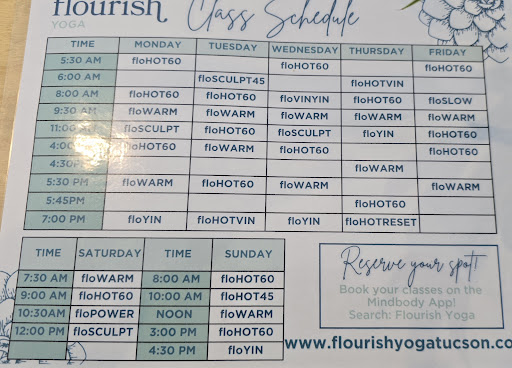 flourish Class Schedule
YOGA
TIME MONDAY TUESDAY WEDNESDAY THURSDAY FRIDAY
5:30 AM floHOT60 floHOT60 floHOT60
6:00 AM floSCULPT45 floHOTVIN
8:00 AM floHOT60 floHOT60 floVINYIN floHOT60 floSLOW
9:30 AM floWARM floWARM floWARM floWARM floWARM
11:00 AM floSCULPT floHOT60 floSCULPT floYIN floHOT60
4:00 floHOT60 floWARM floHOT60 floHOT60
4:30PM floWARM
5:30 PM floWARM floHOT60 floWARM floWARM
5:45PM floHOT60
7:00 PM floYIN floHOTVIN floYIN floHOTRESET
TIME SATURDAY TIME SUNDAY
7:30 AM floWARM 8:00 AM floHOT60
9:00 AM floHOT60 10:00 AM floHOT45
10:30AM floPOWER NOON floWARM
12:00 PM floSCULPT 3:00 PM floHOT60
4:30 PM floYIN
Reserve your spot!
Book your classes on the
Mindbody App!
Search: Flourish Yoga
www.flourishyogatucson.co